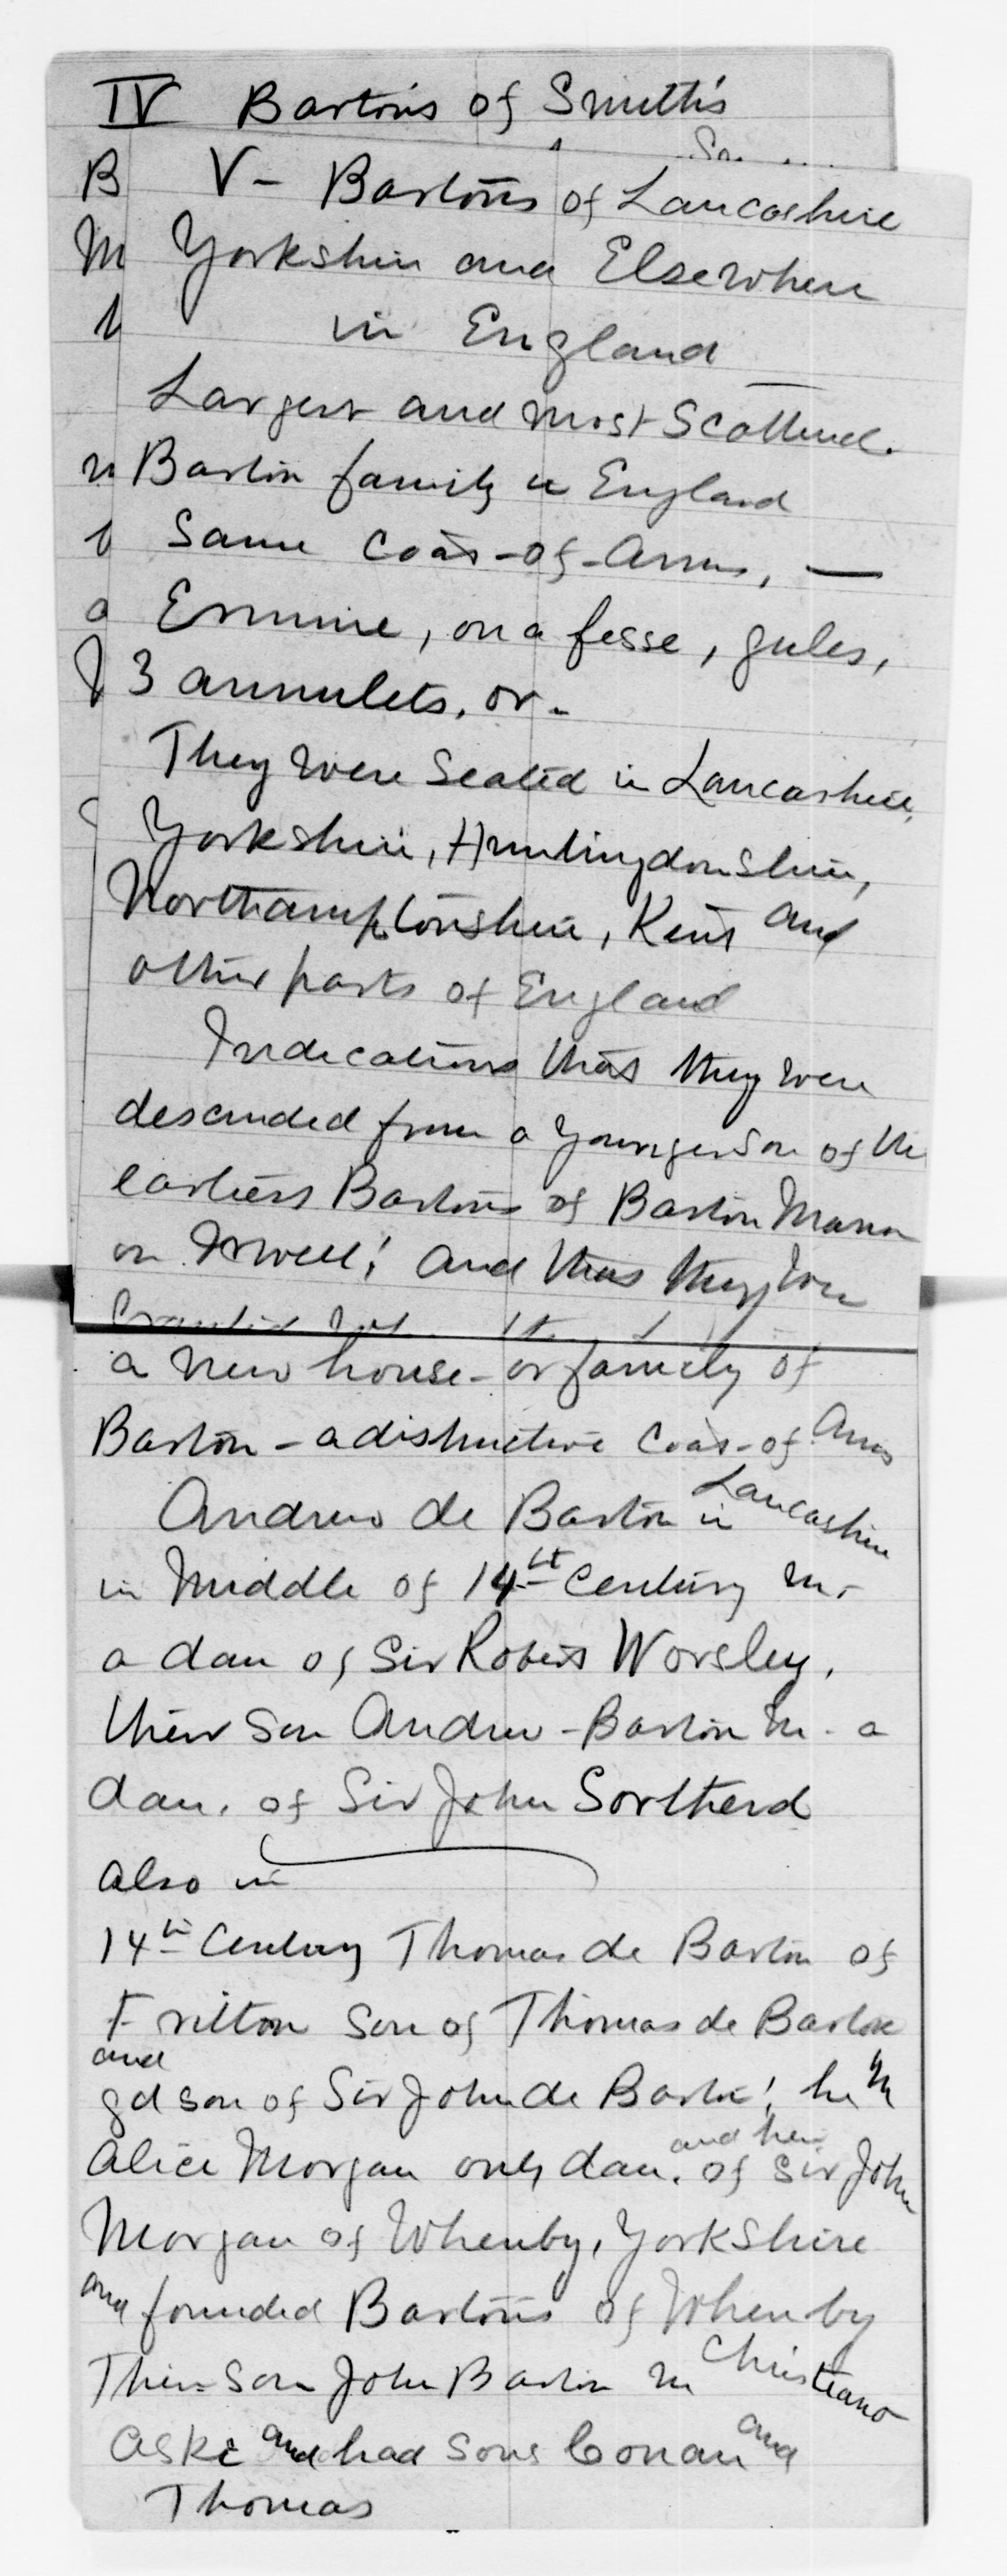 IV Bartons of Smith's
B
M
V - Bartons of Lancashire
Yorkshire and Elsewhere
in England
Largest and most Scattered
Barton family in England
Same Coat-of-Arms, —
Ermine, on a fesse, gules,
3 annulets, or -
They were Seated in Lancashire,
Yorkshire, Huntingdonshire,
Northamptonshire, Kent and
other parts of England
Indications that they were
descended from a younger son of the
earliest Bartons of Barton Manor
on Irwell; and that they were
a new house - or family of
Barton - a distinctive Coat-of Arms
Andrew de Barton in Lancashire
in Middle of 14th Century m.
a dau of Sir Robert Worsley,
their Son Andrew - Barton m. a
dau. of Sir John
also in
14th Century Thomas de Barton of
Fritton Son of Thomas de Barton
and
gd son of Sir John de Barton; he m
Alice Morgan only dau. and heir of Sir John
Morgan of Whenby, Yorkshire
and founded Bartons of Whenby
Their Son John Barton m Christiana
Aske and had Sons Conan and
Thomas